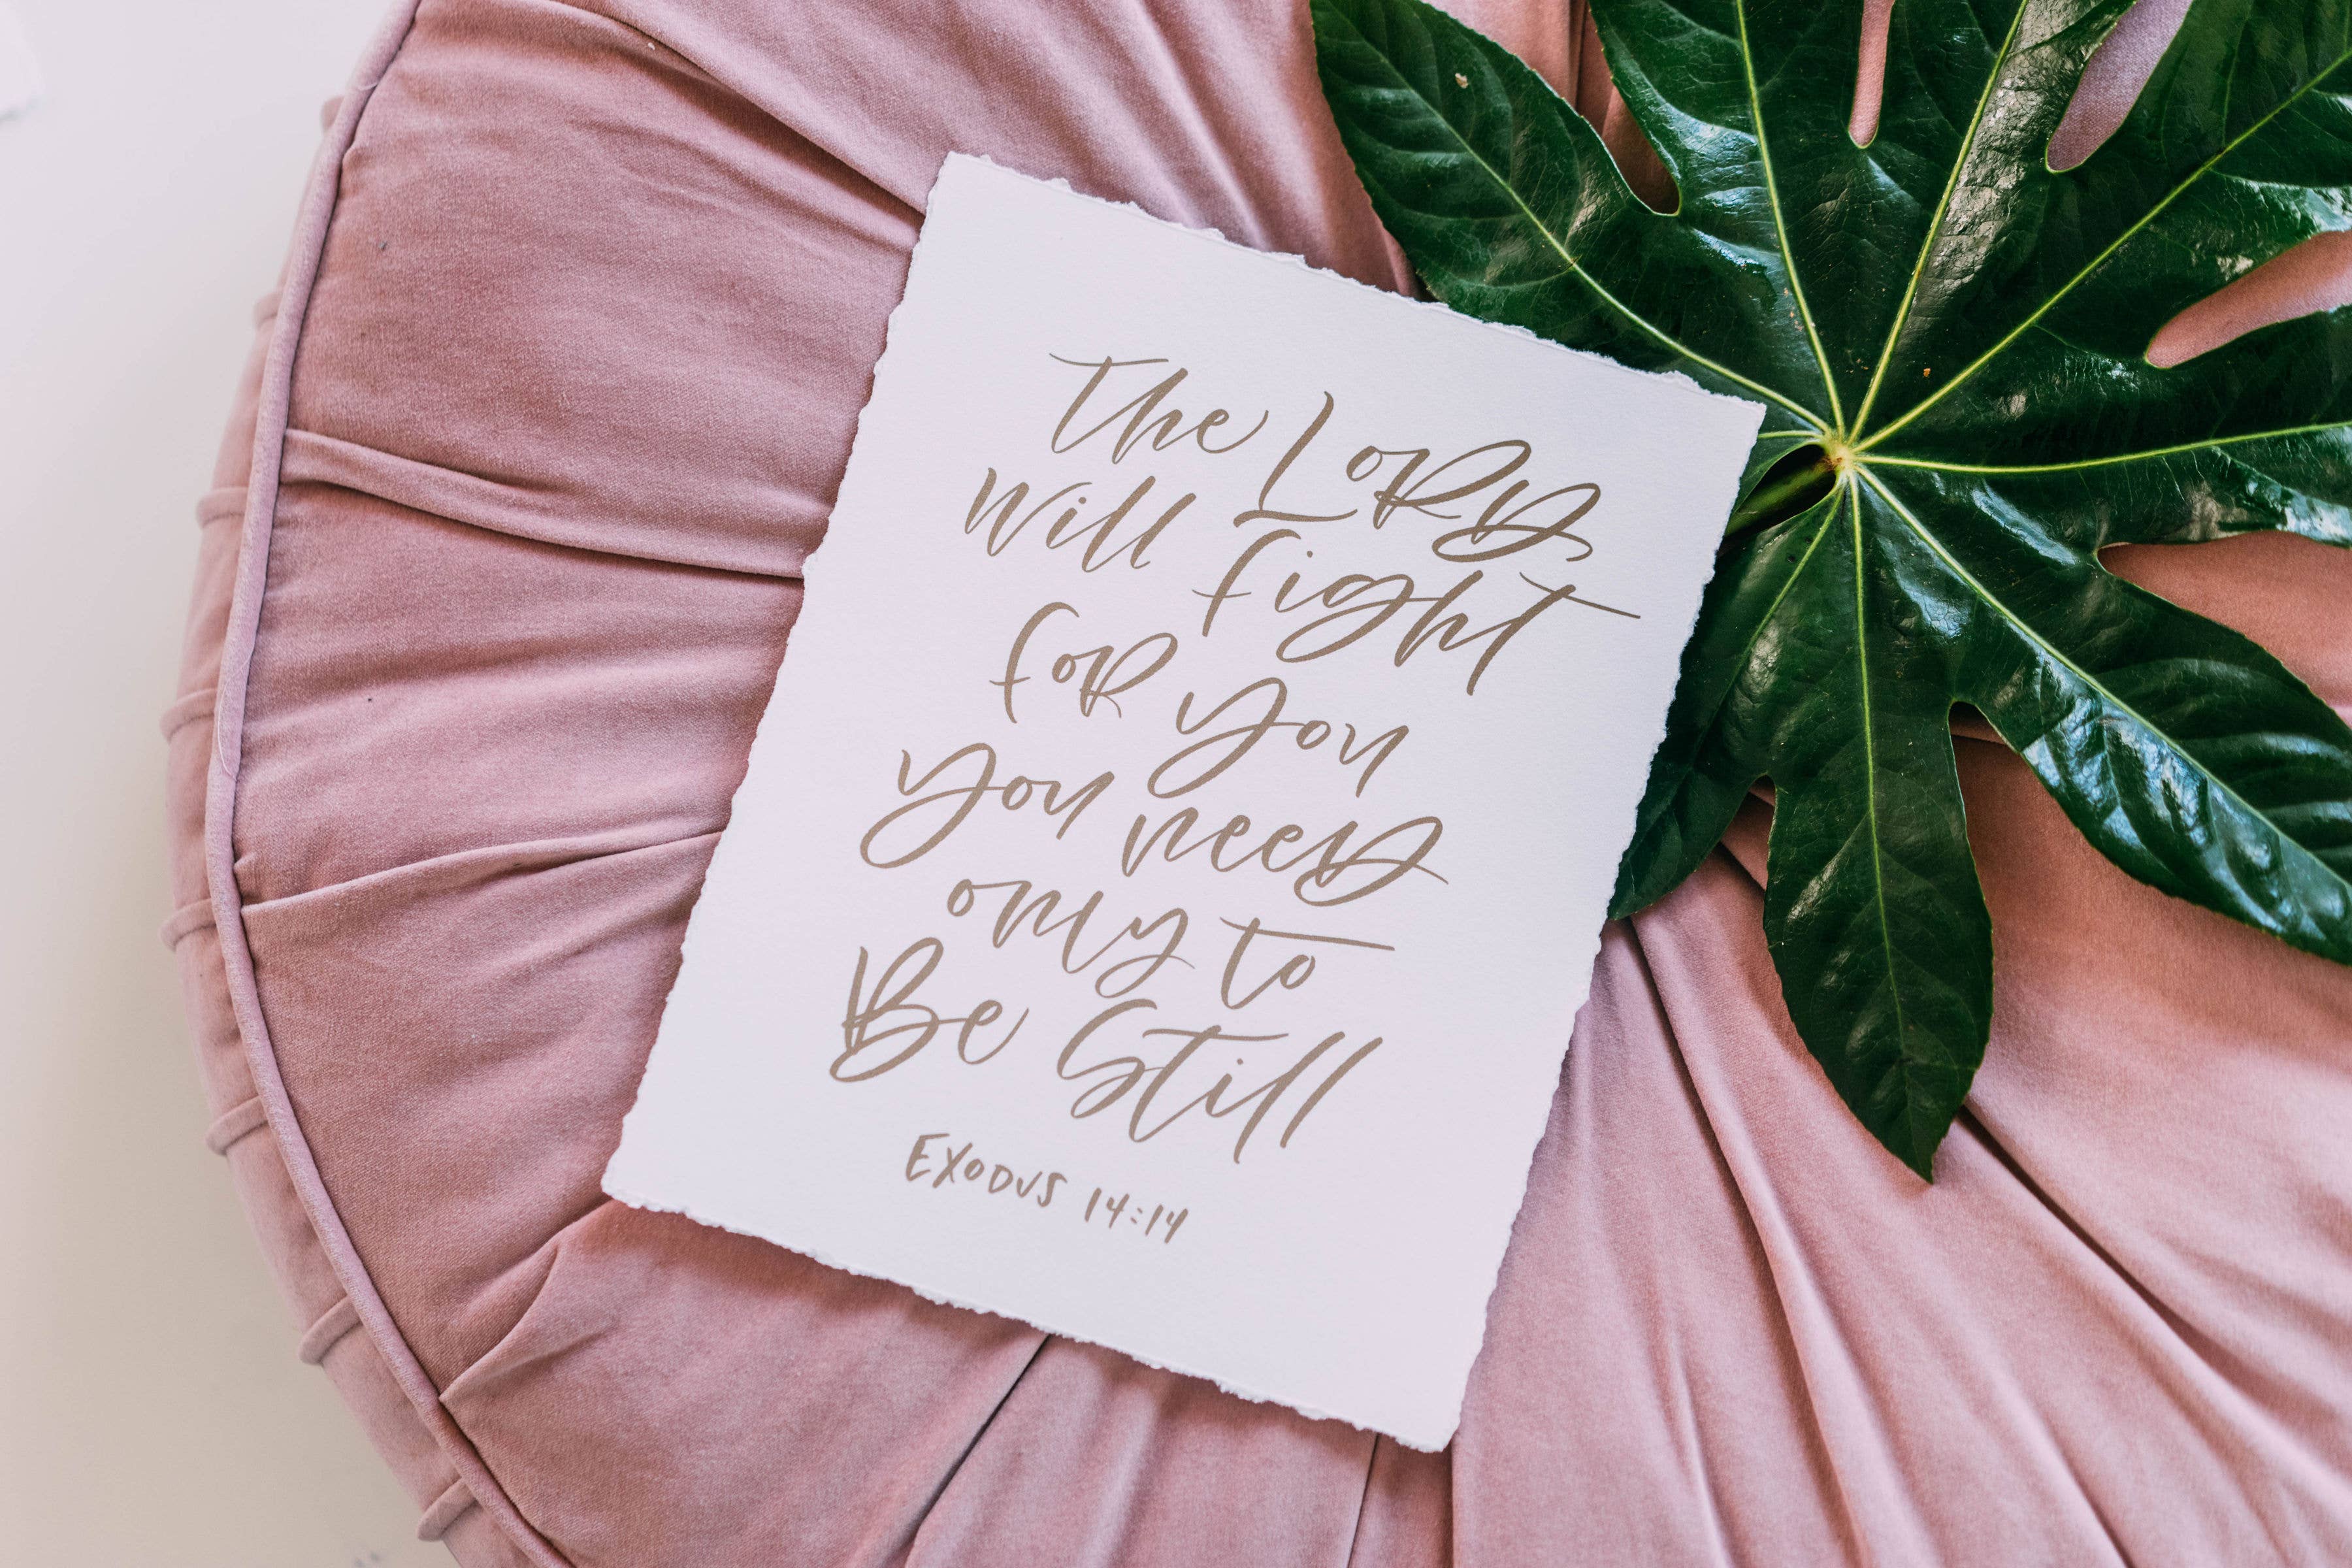 The LORD
will fight
for you
you need
only to
Be Still
EXODUS 14:14